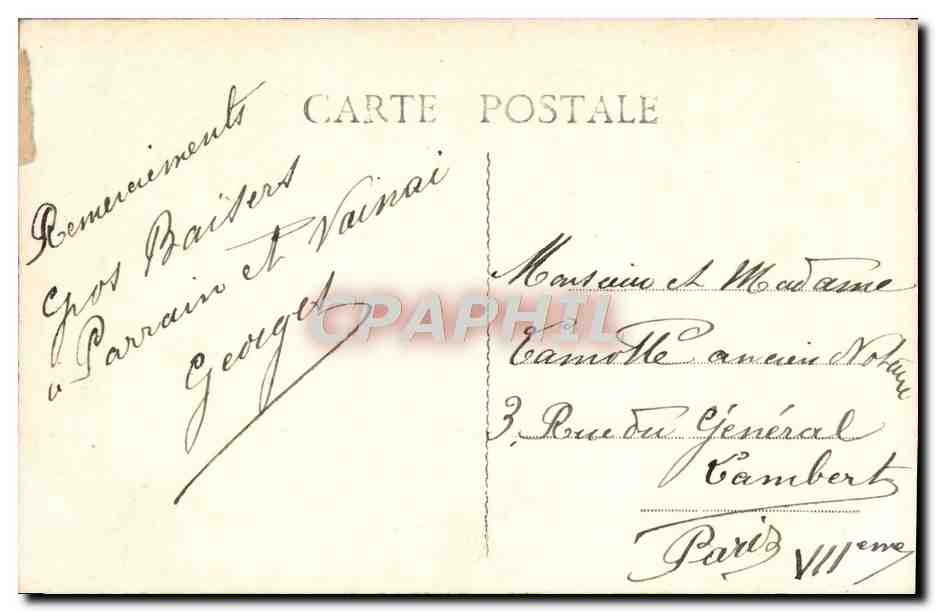 CARTE POSTALE
Remerciements
Gros Baisers
à Parrain et Nainai
Georget
CPAPHIL
Monsieur et Madame
Lamotte ancien Notaire
3, Rue du Général
Lambert
Paris VIIeme